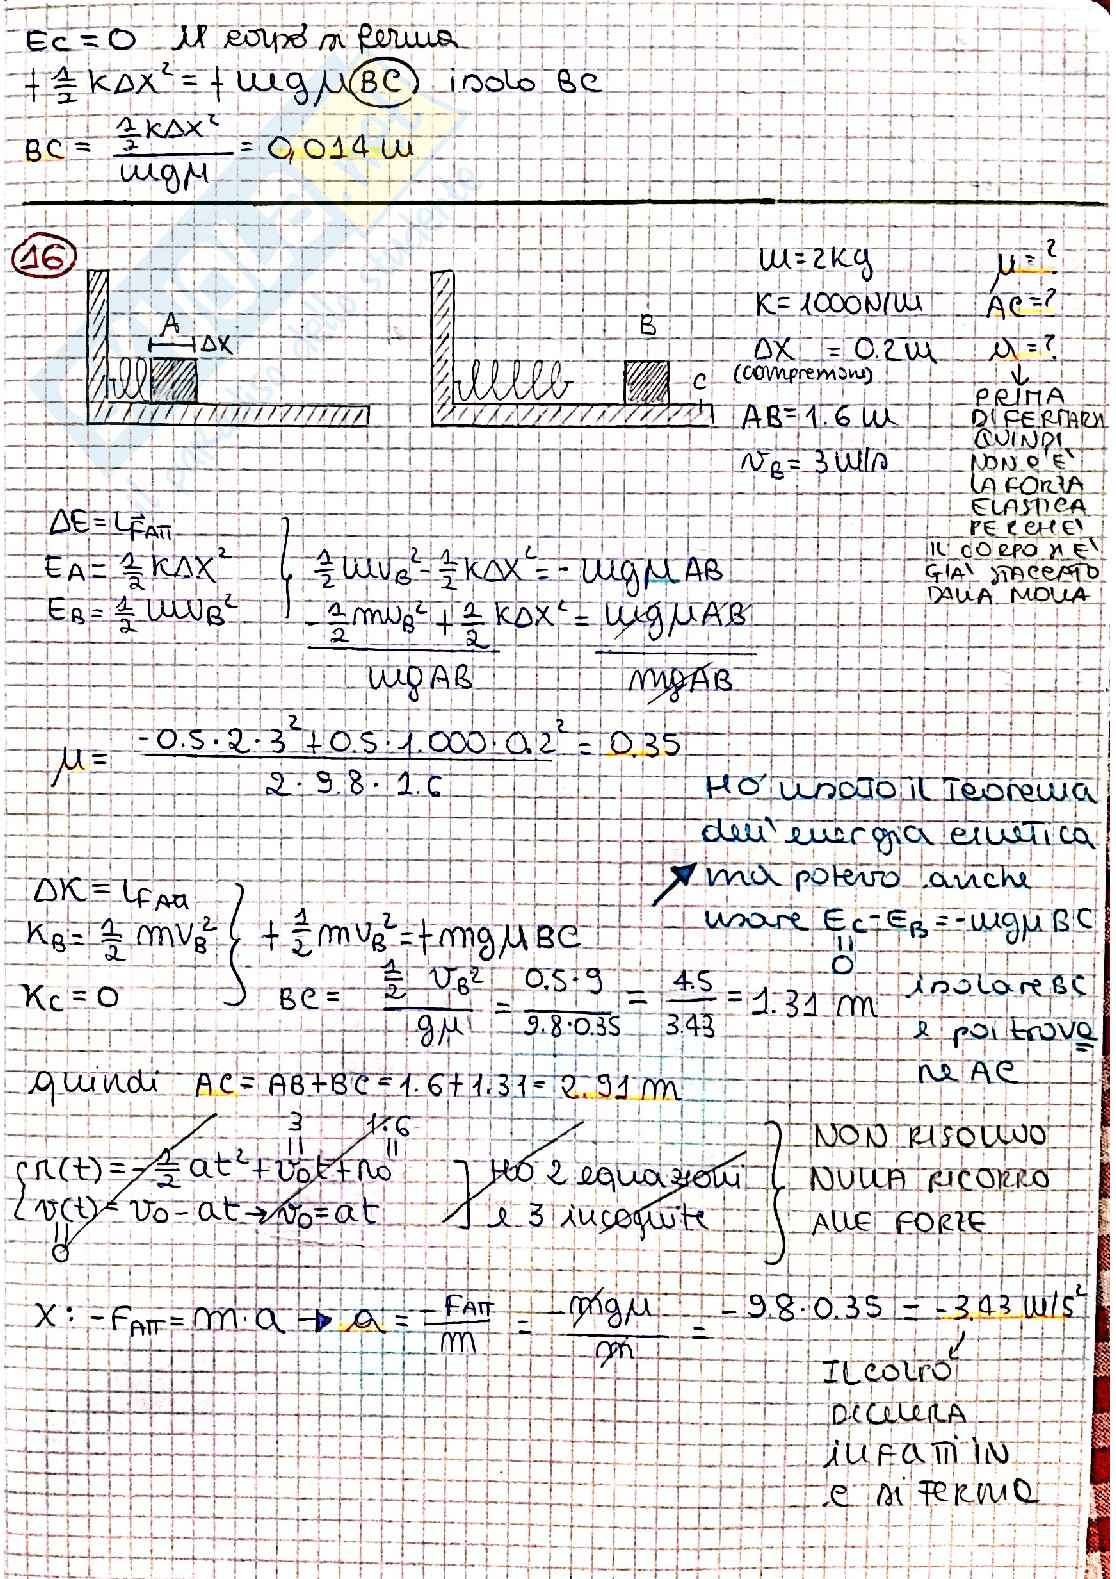 Ec = 0 Il corpo si ferma
+ 1/2 KΔX² = + mgμ BC isolo BC
BC = 1/2 KΔX² / mgμ = 0,014 m
16
A
ΔX
B
C
m = 2Kg
K = 1000N/m
ΔX = 0.2m
(compressione)
AB = 1.6 m
vB = 3 m/s
μ = ?
AC = ?
a = ?
↓
PRIMA
DI FERMARSI
QUINDI
NON C'E'
LA FORZA
ELASTICA
PERCHE'
IL CORPO SI E'
GIA' STACCATO
DALLA MOLLA
ΔE = LFATT
EA = 1/2 KΔX²
EB = 1/2 mvB²
1/2 mvB² - 1/2 KΔX² = - mgμ AB
- 1/2 mvB² + 1/2 KΔX² = mgμAB
mgAB mgAB
μ = -0.5 · 2 · 3² + 0.5 · 1.000 · 0.2² / 2 · 9.8 · 1.6 = 0.35
Ho usato il Teorema
dell'energia cinetica
ma potevo anche
usare Ec - EB = - mgμ BC
0
isolare BC
e poi trova
re AC
ΔK = LFATT
KB = 1/2 mvB²
Kc = 0
+ 1/2 mvB² = + mgμ BC
BC = 1/2 vB² / gμ = 0.5 · 9 / 9.8 · 0.35 = 4.5 / 3.43 = 1.31 m
quindi AC = AB + BC = 1.6 + 1.31 = 2.91 m
3 1.6
r(t) = - 1/2 at² + v0t + r0
v(t) = v0 - at → v0 = at
0
Ho 2 equazioni
e 3 incognite
NON RISOLVO
NULLA RICORRO
ALLE FORZE
X: - FATT = m · a → a = - FATT / m = - mgμ / m = - 9.8 · 0.35 = - 3.43 m/s²
IL CORPO
DECELERA
INFATTI IN
C SI FERMA